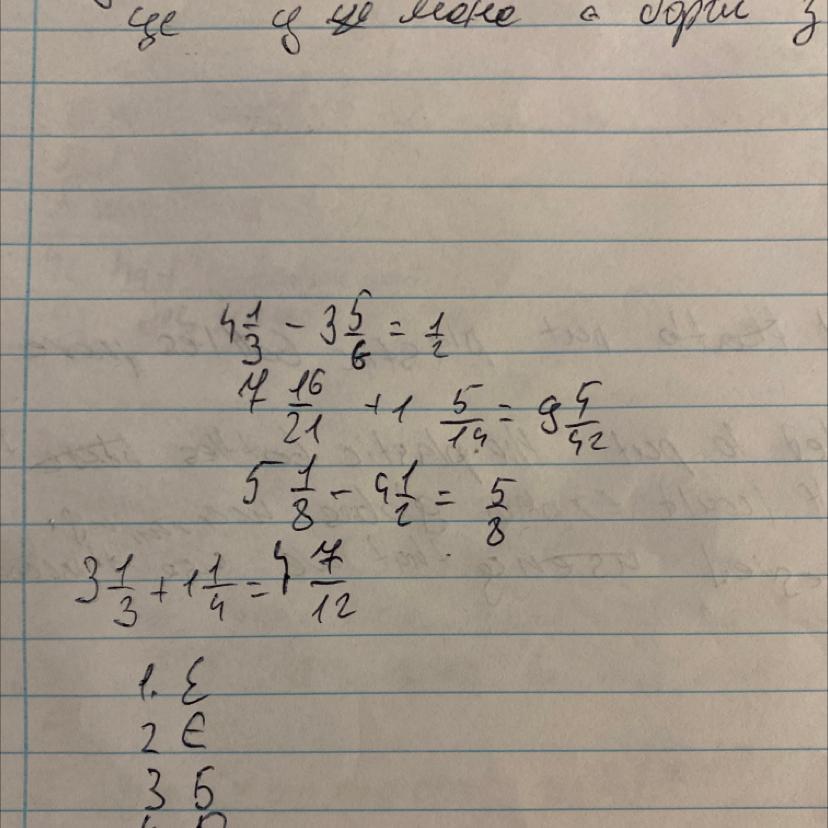 це у це мона а борги з
4 1/3 - 3 5/6 = 1/2
7 16/21 + 1 5/14 = 9 5/42
5 1/8 - 4 1/2 = 5/8
3 1/3 + 1 1/4 = 4 7/12
1. Є
2 Є
3 Б